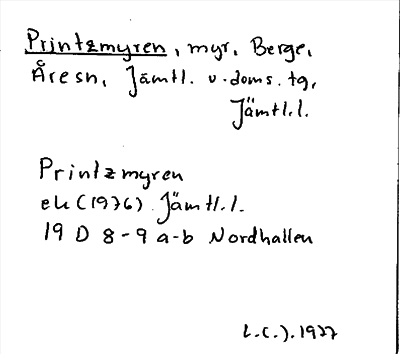 Printzmyren, myr, Berge,
Åresn, Jämtl. v. doms. tg,
Jämtl.l.
Printzmyren
ek (1976) Jämtl.l.
19 D 8-9 a-b Nordhallen
L.C.J. 1977